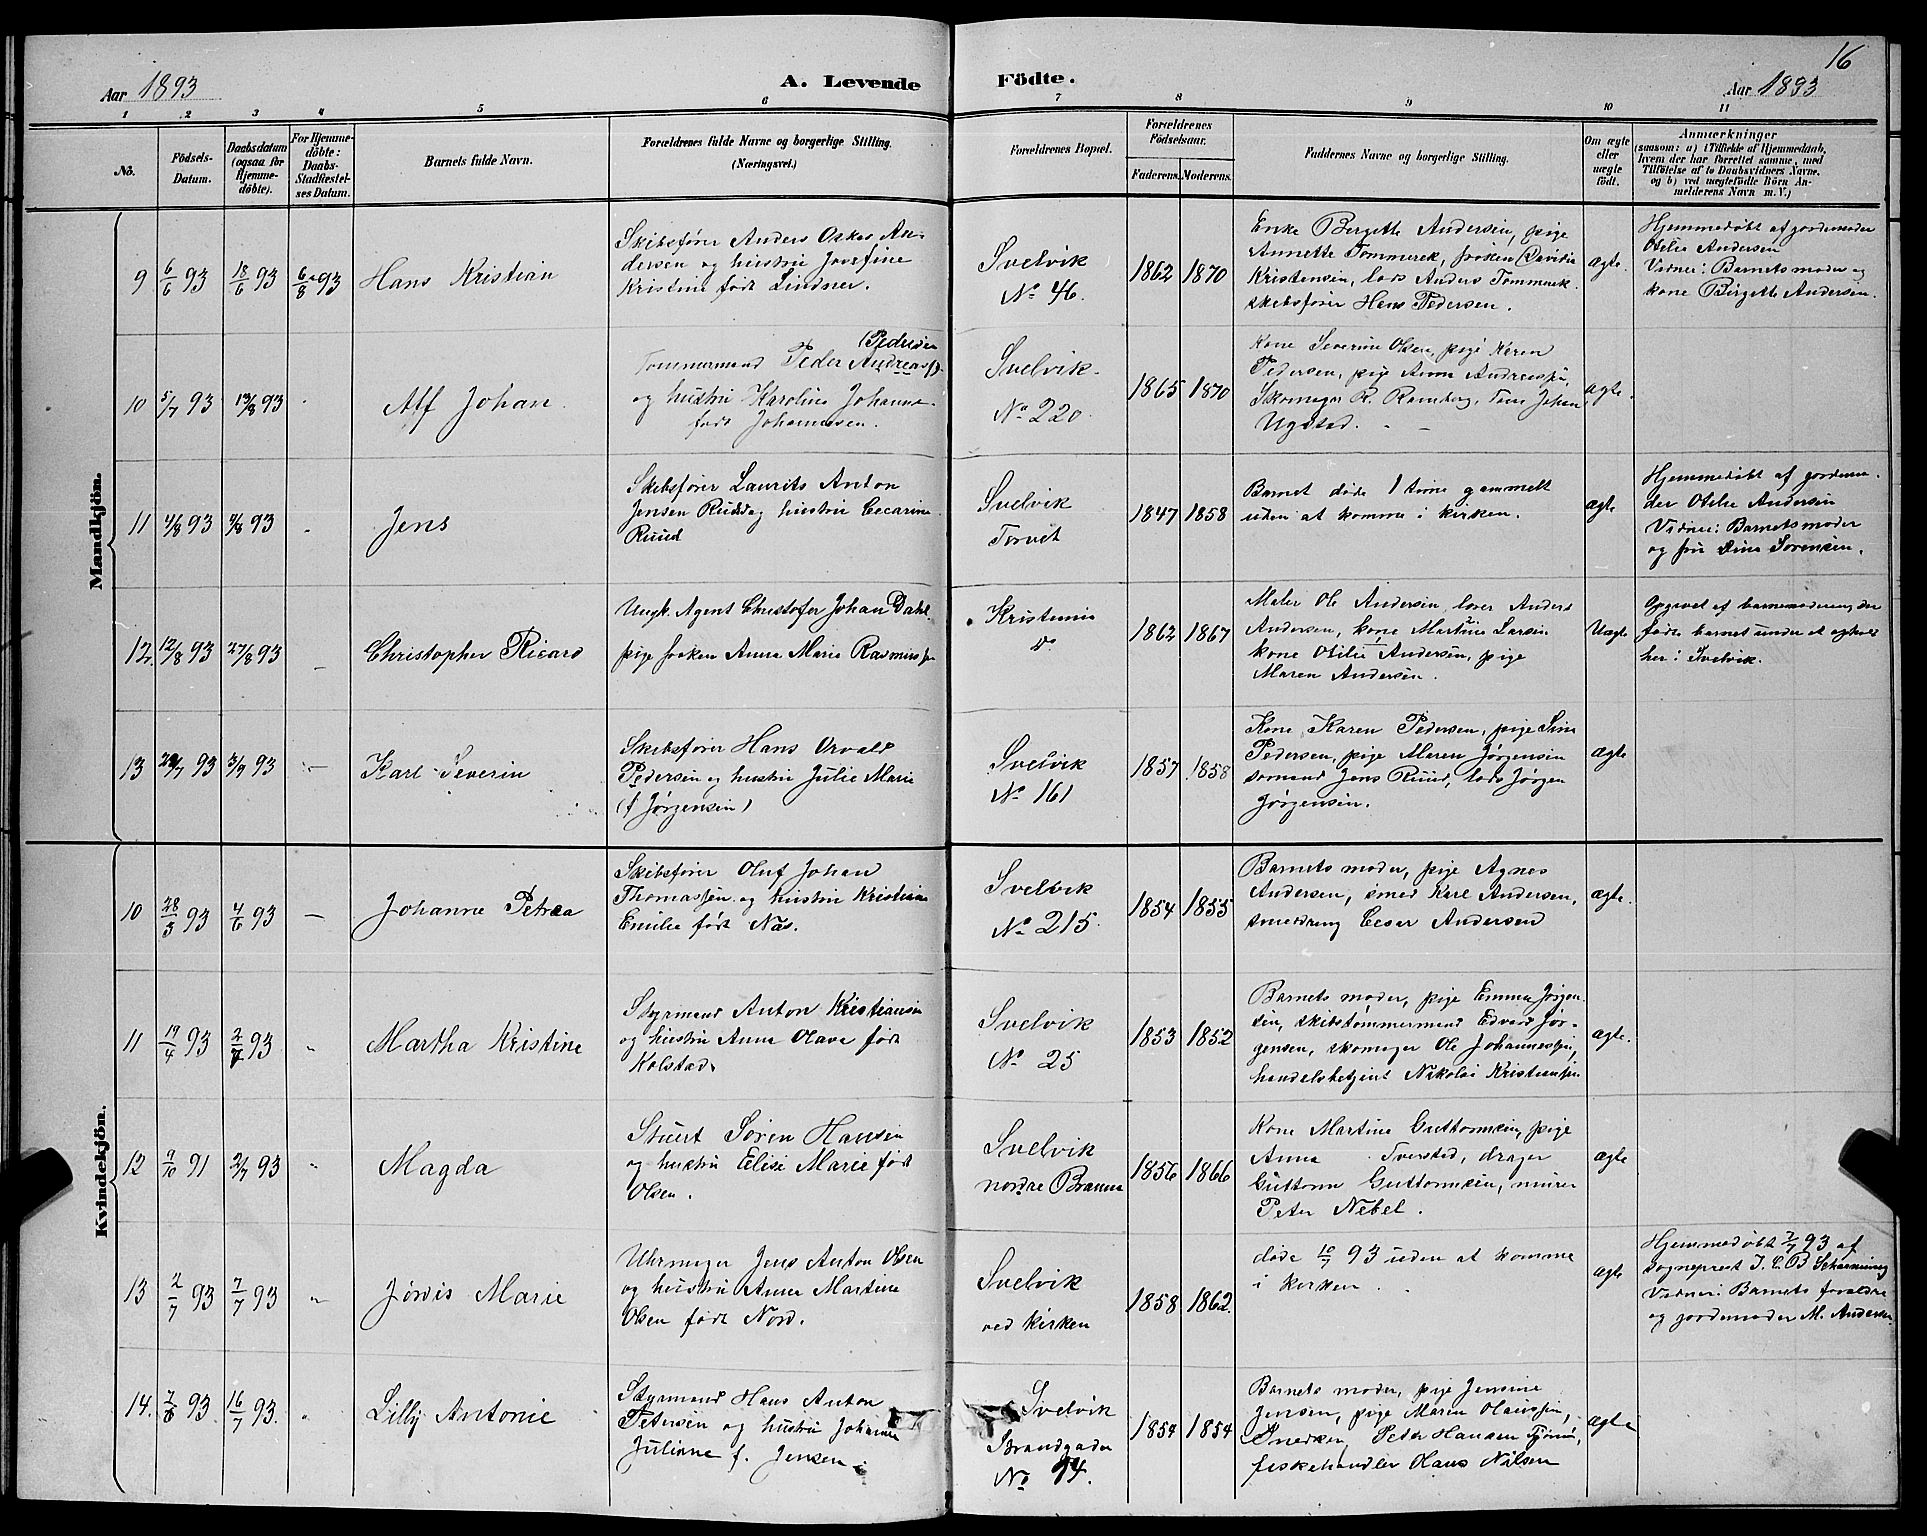 16
Aar 1893
A. Levende
Födte.
Aar 1893
1 2 3 4 5 6 7 8 9 10 11
No.
Födsels-
Datum.
Daabsdatum
(ogsaa for
Hjemme-
döbte).
For Hjemme-
döbte:
Daabs-
Stadfæstel-
ses Datum.
Barnets fulde Navn.
Forældrenes fulde Navne og borgerlige Stilling.
(Næringsvei.)
Forældrenes Bopæl.
Forældrenes
Födselsaar.
Faderens. Moderens.
Faddernes Navne og borgerlige Stilling.
Om ægte
eller
uægte
födt.
Anmærkninger
(saasom: a) i Tilfælde af Hjemmedaab,
hvem der har forrettet samme, med
Tilföielse af to Daabsvidners Navne,
og b) ved uægtefödte Börn An-
melderens Navn m. V.)
Mandkjön.
9
6/6 93
18/6 93
6/8 93
Hans Kristian
Skibsfører Anders Oskar An-
dersen og hustru Josefine
Kristine født Lindner.
Svelvik
No 46.
1862
1870
Enke Birgette Andersen, pige
Annette Tømmerek, frøken
Kristensen, lods Anders Tømmerek
skibsfører Hans Pedersen.
ægte.
Hjemmedøbt af gordemoder
Otilie Andersen
Vidner: Barnets moder og
kone Birgette Andersen.
10
5/7 93
13/8 93
Alf Johan
Tømmermand Peder Andreas
og hustru Karoline Johanne
født Johannesen.
Svelvik
No 220
1865
1870
Kone Severine Olsen, pige Karen
Pedersen, pige Anna
Skomager R. Ramberg, Johan
Ugstad.
ægte.
11
4/8 93
4/8 93
Jens
Skibsfører Laurits Anton
Jensen Ruud og hustru Cecarine
Ruud
Svelvik
Torvet
1847
1858
Barnet døde 1 time gammelt
uden at komme i kirken.
ægte
Hjemmedøbt af gordemo-
der Otilie Andersen
Vidner: Barnets moder
og fru Lina Sørensen.
12
12/8 93
27/8 93
Christopher Ricard
Ungk. Agent Christofer Johan Dahl
pige frøken Anna Marie
Kristiania
do
1862
1867
Maler Ole Andersen, Anders
Andersen, kone Martine Larsen
kone Otilie Andersen, pige
Maren Andersen.
Uægte
Opgivet af barnemoderen der
fødte barnet under et ophold
her i Svelvik.
13
93
3/9 93
Karl Severin
Skibsfører Hans Orvald
Pedersen og hustru Julie Marie
(f Jørgensen)
Svelvik
No 161
1857
1858
Kone Karen Pedersen, pige Sina
Pedersen, pige Maren Jørgensen
sømand Jens Ruud, lods Jørgen
Jørgensen.
ægte
Kvindekjön.
10
28/3 93
4/6 93
Johanne Petrea
Skibsfører Oluf Johan
Thomassen og hustru Kristiane
Emilie født Næs.
Svelvik
No 215
1854
1855
Barnets moder, pige Agnes
Andersen, smed Karl Andersen,
smeddreng Cesar Andersen
ægte.
11
19/4 93
2/7 93
Martha Kristine
Styrmand Anton Kristiansen
og hustru Anna Olava født
Kolstad.
Svelvik
No 25
1853
1852
Barnets moder, pige Emma Jørgen-
sen, skibstømmermand Edvard Jør-
gensen, skomager Ole Johannessen,
handelsbetjent Nikolai Kristiansen
ægte.
12
9/10 91
2/7 93
Magda
Stuert Søren Hansen
og hustru Elise Marie født
Olsen.
Svelvik
nordre
1856
1866
Kone Martine Guttormsen, pige
Anna Tverstad, drager
Guttorm Guttormsen, murer
Peter Nebel.
ægte
13
2/7 93
7/7 93
Jørdis Marie
Uhrmager Jens Anton Olsen
og hustru Anna Martine
Olsen født Nord.
Svelvik
ved kirken
1858
1862.
døde 10/7 93 uden at komme
i kirken.
ægte
Hjemmedøbt 7/7 93 af
sogneprest J. C. B.
Vidner: Barnets forældre
og gordemoder M. Andersen
14.
7/6 93.
16/7 93.
Lilly Antonie
Styrmand Hans Anton
Petersen og hustru Johanne
Julianne f. Jensen.
Svelvik
Strandgaden
No 94.
1854
1854
Barnets moder, pige Jensine
Jensen, pige Maren Olaussen,
Snedker Peter Hansen
fiskehandler Hans Nilsen
ægte